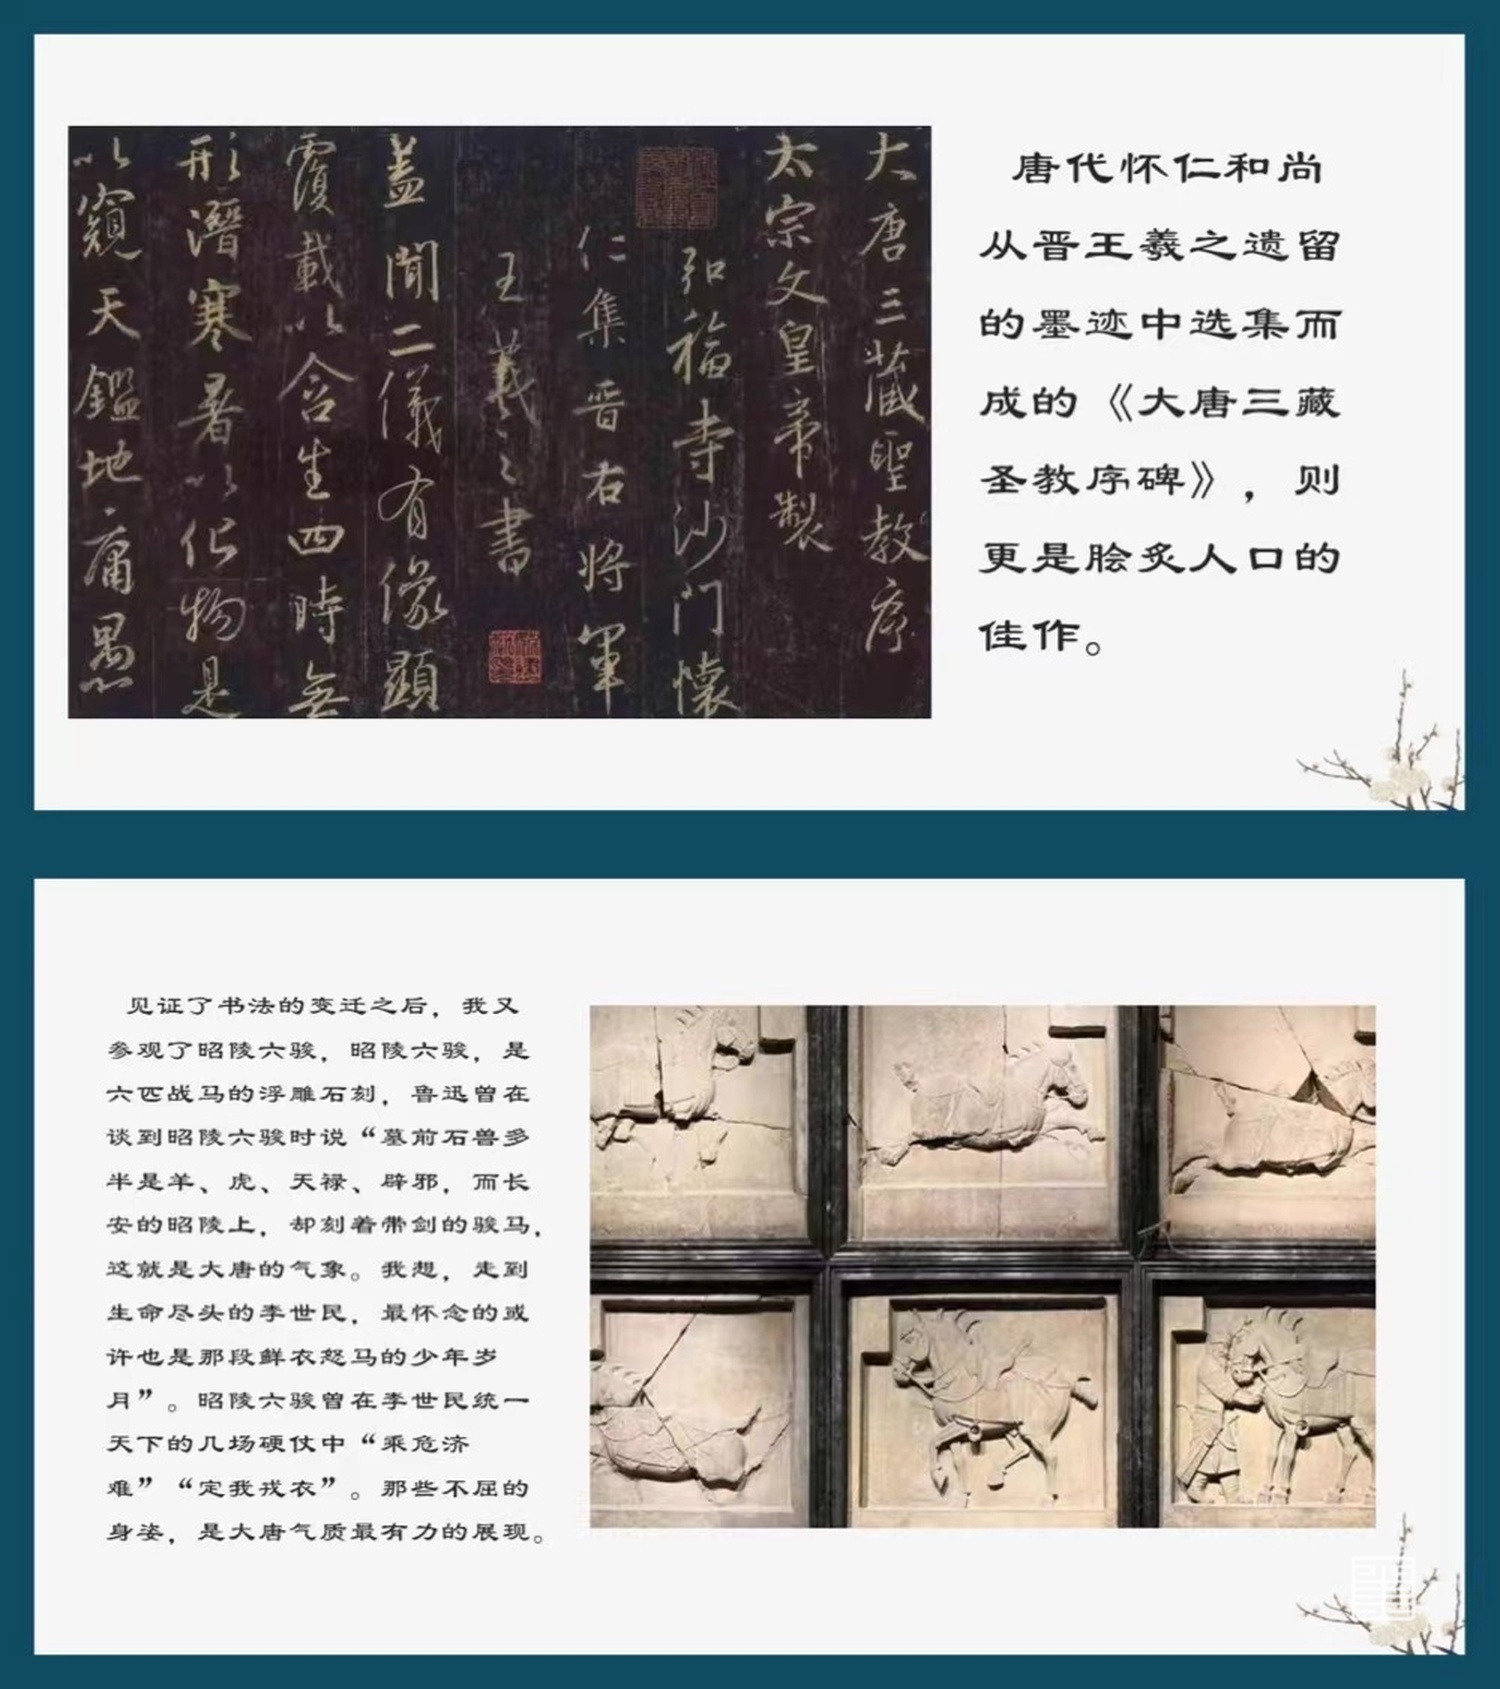 大唐三藏聖教序
太宗文皇帝製
弘福寺沙門懷
仁集晉右將軍
王羲之書
蓋聞二儀有像顯
覆載以含生四時無
形潛寒暑以化物是
以窺天鑑地庸愚
唐代怀仁和尚
从晋王羲之遗留
的墨迹中选集而
成的《大唐三藏
圣教序碑》，则
更是脍炙人口的
佳作。
见证了书法的变迁之后，我又
参观了昭陵六骏，昭陵六骏，是
六匹战马的浮雕石刻，鲁迅曾在
谈到昭陵六骏时说“墓前石兽多
半是羊、虎、天禄、辟邪，而长
安的昭陵上，却刻着带剑的骏马，
这就是大唐的气象。我想，走到
生命尽头的李世民，最怀念的或
许也是那段鲜衣怒马的少年岁
月”。昭陵六骏曾在李世民统一
天下的几场硬仗中“乘危济
难”“定我戎衣”。那些不屈的
身姿，是大唐气质最有力的展现。